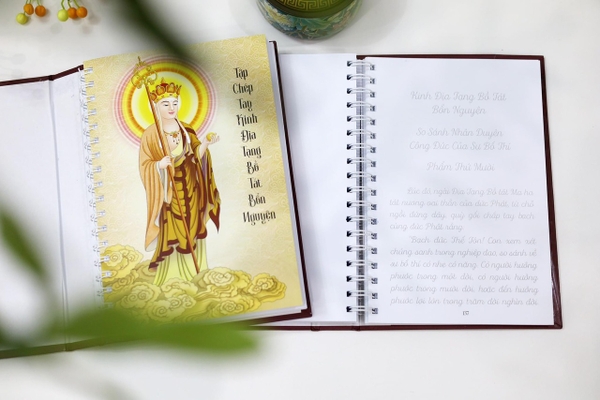 Tập
Chép
Tay
Kinh
Địa
Tạng
Bồ
Tát
Bổn
Nguyện
Kinh Địa Tạng Bồ Tát
Bổn Nguyện
So Sánh Nhân Duyên
Công Đức Của Sự Bố Thí
Phẩm Thứ Mười
Lúc đó ngài Địa Tạng Bồ Tát Ma ha
tát nương oai thần của đức Phật, từ chỗ
ngồi đứng dậy, quỳ gối chắp tay bạch
cùng đức Phật rằng:
"Bạch đức Thế Tôn! Con xem xét
chúng sanh trong nghiệp đạo, so sánh về
sự bố thí có nhẹ có nặng. Có người hưởng
phước trong một đời, có người hưởng
phước trong mười đời, hoặc đến hưởng
phước lợi lớn trong trăm đời nghìn đời.